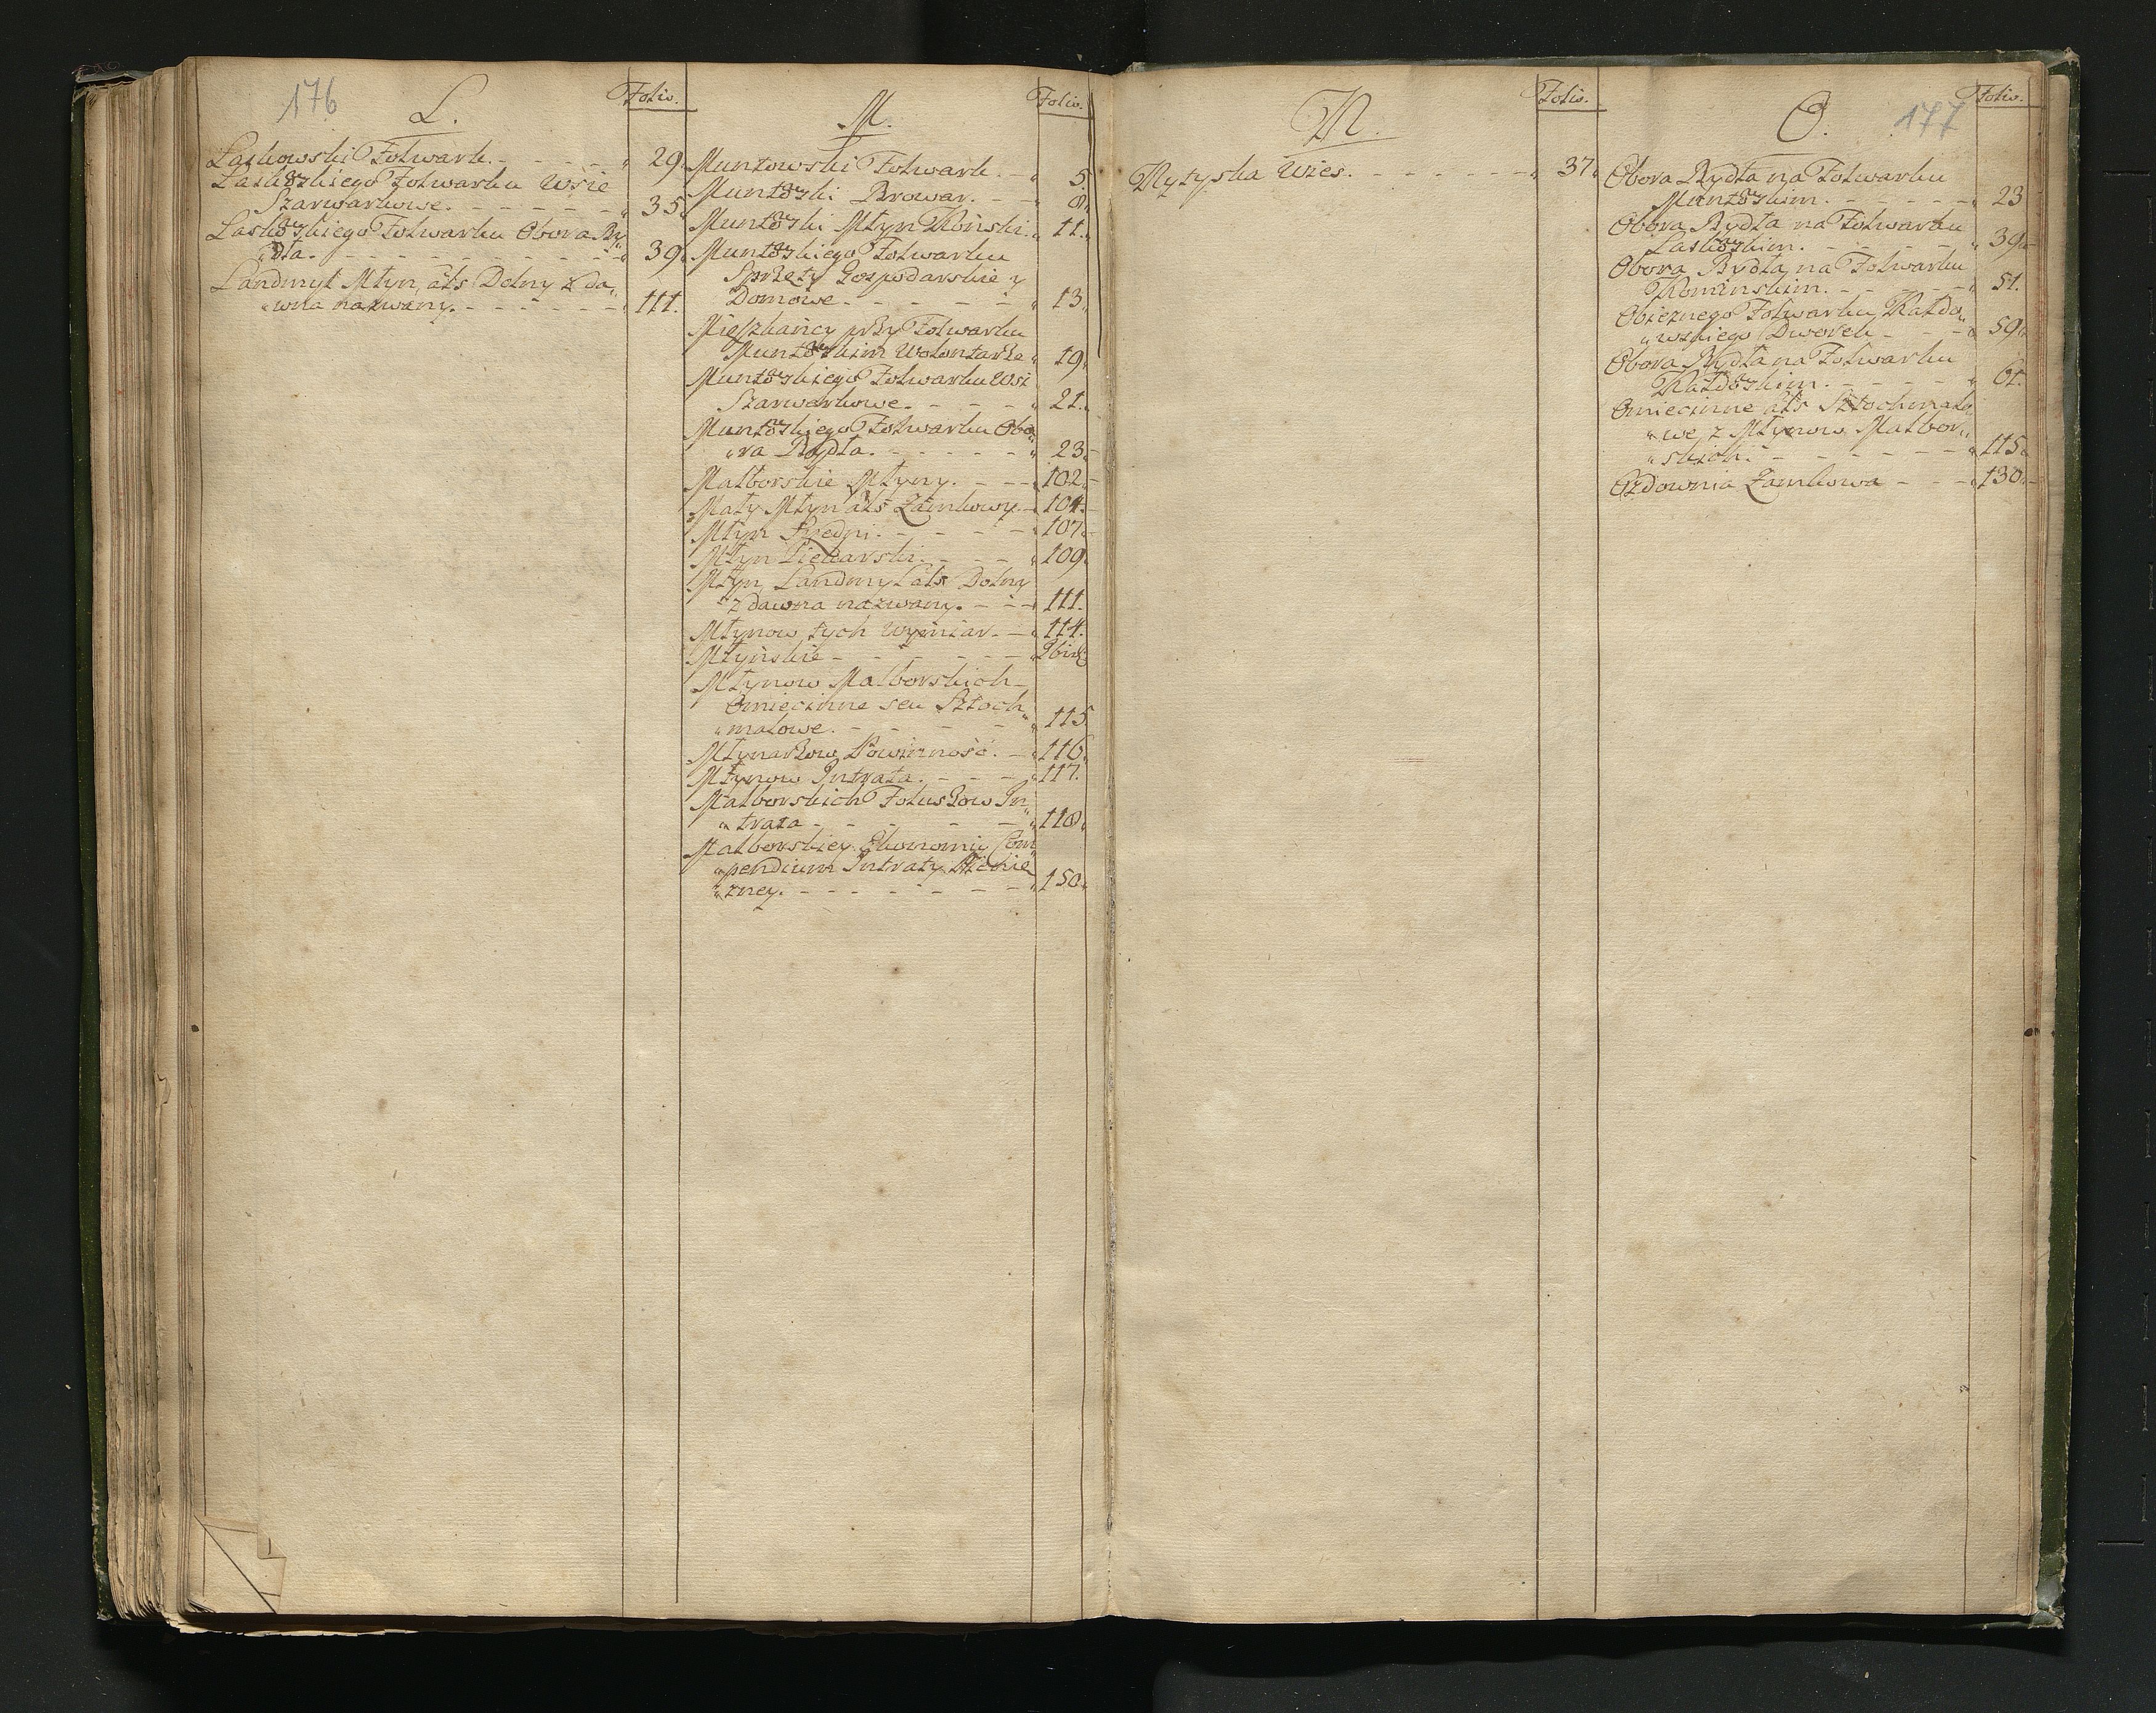 176
L. Folio.
Laskowski Folwark. - - - - 29.
Laskowskiego Folwarku Wsie
Szarwarkowe. - - - - - 35.
Laskowskiego Folwarku Obora By„
„dła. - - - - - - - - 39.
Landmyl Młyn, als Dolny z da„
„wna nazwany. - - - - - 111.
M. Folio.
Muntowski Folwark. - 5.
Muntowski Browar. - - 8.
Muntowski Młyn Konski. 11.
Muntowskiego Folwarku
Sprzęty Gospodarskie y
Domowe. - - - - - 13.
Mieszkańcy przy Folwarku
Muntowskim Wolontarze 19.
Muntowskiego Folwarku Wsi
Szarwarkowe. - - - - 21.
Muntowskiego Folwarku Obo„
„ra Bydła. - - - - - 23.
Malborskie Młyny. - - - 102.
Mały Młyn als Zamkowy. - 104.
Młyn Sredni. - - - - - 107.
Młyn Piekarski. - - - - 109.
Młyn Landmyl als Dolny
z dawna nazwany. - - - 111.
Młynow tych Wymiar. - 114.
Młyńskie - - - - - - Ibid:
Młynow Malborskich
Omiecinne seu Sztoch„
„malowe. - - - - - 115.
Młynarzow Powinność. - 116.
Młynow Intrata. - - - - 117.
Malborskich Foluszow In„
„trata - - - - - - 118.
Malborskiey Ekonomiy Com„
„pendium Intraty
„zney. - - - - - - - 150.
N. Folio.
Nytyska Wies. - - - - - - 37.
O. 177 Folio.
Obora Bydła na Folwarku
Muntowskim. - - - - - 23
Obora Bydła na Folwarku
Laskowskim. - - - - - 39.
Obora Bydła na Folwarku
Kominskim. - - - - - 51.
Obieznego Folwarku Kałdo„
„wskiego Dworek - - - 59.
Obora Bydła na Folwarku
Kałdowskim. - - - - - 61.
Omiecinne als Sztochmalo„
„we, z Młynow Malbor„
„skich. - - - - - - - 115.
Ozdownia Zamkowa - - - 130.